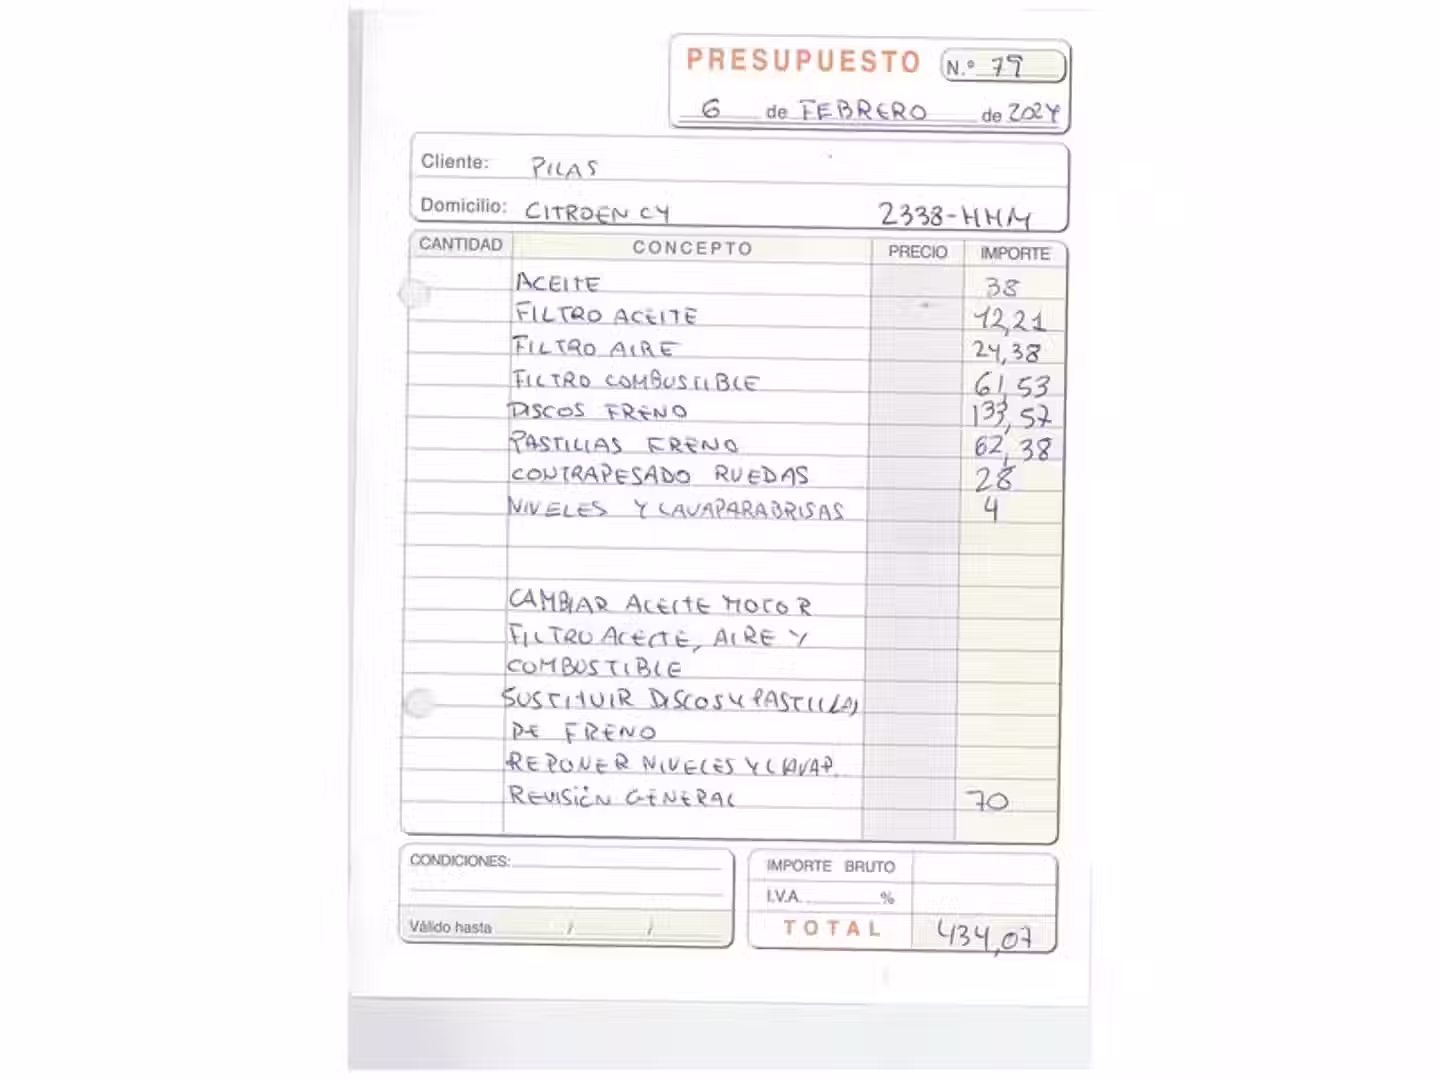 PRESUPUESTO N.º 79
6 de FEBRERO de 2024
Cliente: PILAS
Domicilio: CITROEN C4 2338-HHM
CANTIDAD CONCEPTO PRECIO IMPORTE
ACEITE 38
FILTRO ACEITE 12,21
FILTRO AIRE 24,38
FILTRO COMBUSTIBLE 61,53
DISCOS FRENO 133,57
PASTILLAS FRENO 62,38
CONTRAPESADO RUEDAS 28
NIVELES Y LAVAPARABRISAS 4
CAMBIAR ACEITE MOTOR
FILTRO ACEITE, AIRE Y
COMBUSTIBLE
SUSTITUIR DISCOS Y PASTILLAS
DE FRENO
REPONER NIVELES Y LAVAP.
REVISIÓN GENERAL 70
CONDICIONES:
Válido hasta / /
IMPORTE BRUTO
I.V.A. %
TOTAL 434,07